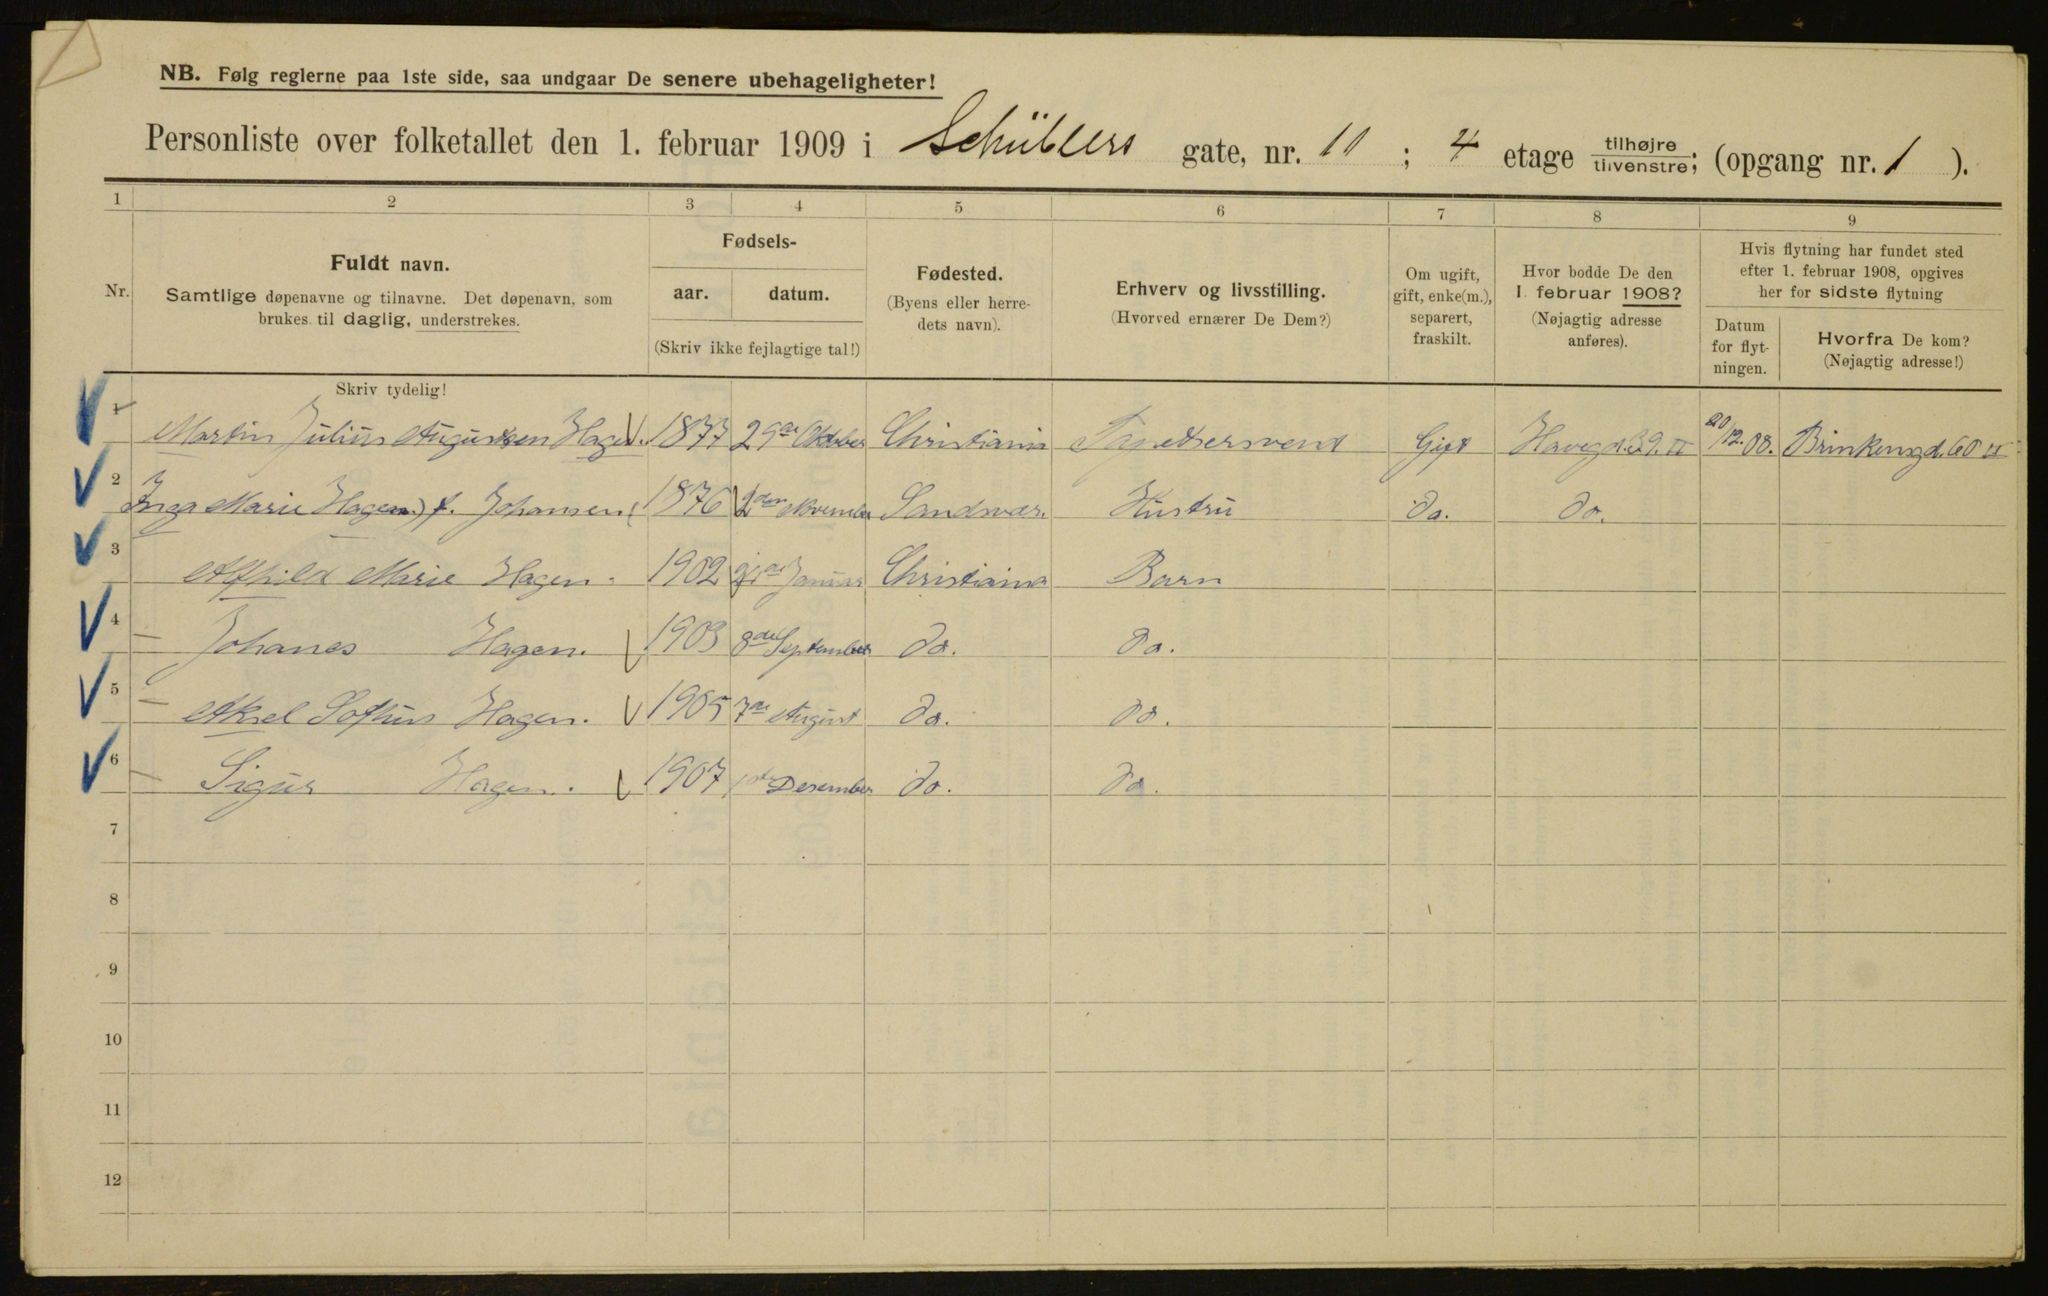 NB. Følg reglerne paa 1ste side, saa undgaar De senere ubehageligheter!
Personliste over folketallet den 1. februar 1909 i Schüblers gate, nr. 10 ; 4 etage tilhøjre/tilvenstre; (opgang nr. 1 ).
1 2 3 4 5 6 7 8 9
Nr. Fuldt navn. Samtlige døpenavne og tilnavne. Det døpenavn, som brukes til daglig, understrekes. Fødsels- aar. datum. (Skriv ikke fejlagtige tal!) Fødested. (Byens eller herredets navn). Erhverv og livsstilling. (Hvorved ernærer De Dem?) Om ugift, gift, enke(m.), separert, fraskilt. Hvor bodde De den 1. februar 1908? (Nøjagtig adresse anføres). Hvis flytning har fundet sted efter 1. februar 1908, opgives her for sidste flytning Datum for flytningen. Hvorfra De kom? (Nøjagtig adresse!)
Skriv tydelig!
1 Martin Julius Augustsen Hagen. 1877 29de Oktober Christiania Tapetsersvend Gift Havegd. 39. II 20/12.08. Brinkensgd. 60 II
2 Inga Marie Hagen f. Johansen 1876 2den November Sandsvær. Hustru do. do.
3 Alfhild Marie Hagen. 1902 Januar Christiania Barn
4 — Johanes Hagen. 1903 8de September do. do.
5 — Aksel Sofhus Hagen. 1905 7de August do. do.
6 — Sigur Hagen. 1907 1ste Desember do. do.
7
8
9
10
11
12